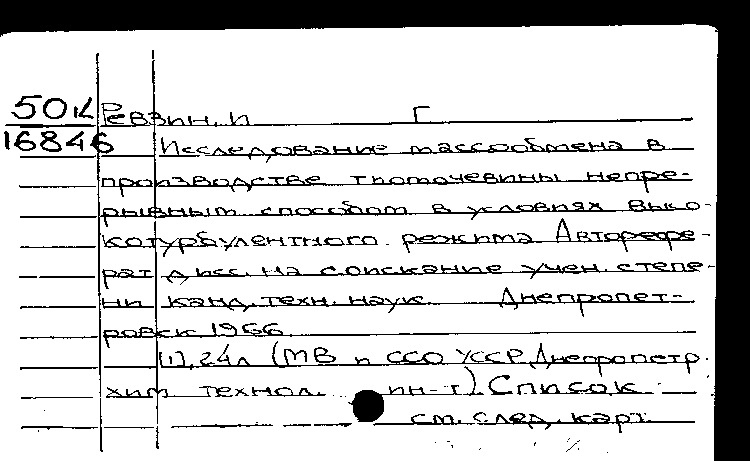 50к Ревзин, И Г
16846 Исследование массообмена в
производстве тиомочевины непре-
рывным способом в условиях выко-
котурбулентного режима Авторефе-
рат дисс. на соискание учен. степе-
ни канд. техн. наук Днепропет-
ровск 1966
[1], 24л (МВ и ССО УССР. Днепропетр.
хим. технол. ин-т). Список
см. след. карт.